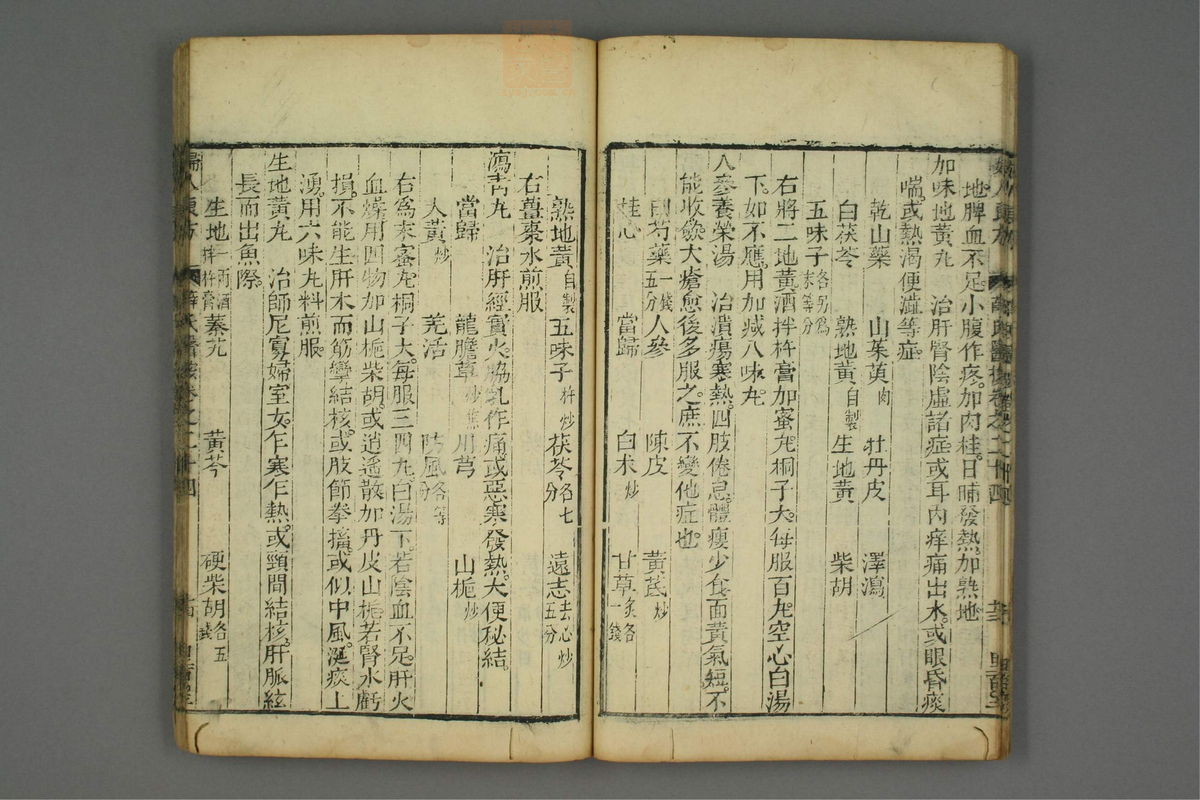 地脾血不足小腹作疼加肉桂日晡發熱加熟地
加味地黃丸　治肝腎陰虛諸症或耳內痒痛出水或眼昏痰
喘或熱渴便澁等症
乾山藥　山茱萸肉　牡丹皮　澤瀉
白茯苓　熟地黃自製　生地黃　柴胡
五味子各另為末等分
右將二地黃酒拌杵膏加蜜丸桐子大每服百丸空心白湯
下如不應用加減八味丸
人參養榮湯　治潰瘍寒熱四肢倦怠體瘦少食面黃氣短不
能收斂大瘡愈後多服之庶不變他症也
白芍藥一錢五分　人參　陳皮　黃芪炒
桂心　當歸　白朮炒　甘草炙各一錢
熟地黃自製　五味子杵炒　茯苓各七分　遠志去心炒五分
右薑棗水煎服
瀉青丸　治肝經實火脇乳作痛或惡寒發熱大便秘結
當歸　龍膽草炒焦　川芎　山梔炒
大黃炒　羌活　防風各等分
右為末蜜丸桐子大每服三四丸白湯下若陰血不足肝火
血燥用四物加山梔柴胡或逍遥散加丹皮山梔若腎水虧
損不能生肝木而筋攣結核或肢節拳搐或似中風涎痰上
湧用六味丸料煎服
生地黃丸　治師尼寡婦室女乍寒乍熱或頸間結核肝脈絃
長而出魚際
生地一兩酒拌杵膏　蓁艽　黃芩　硬柴胡各五錢